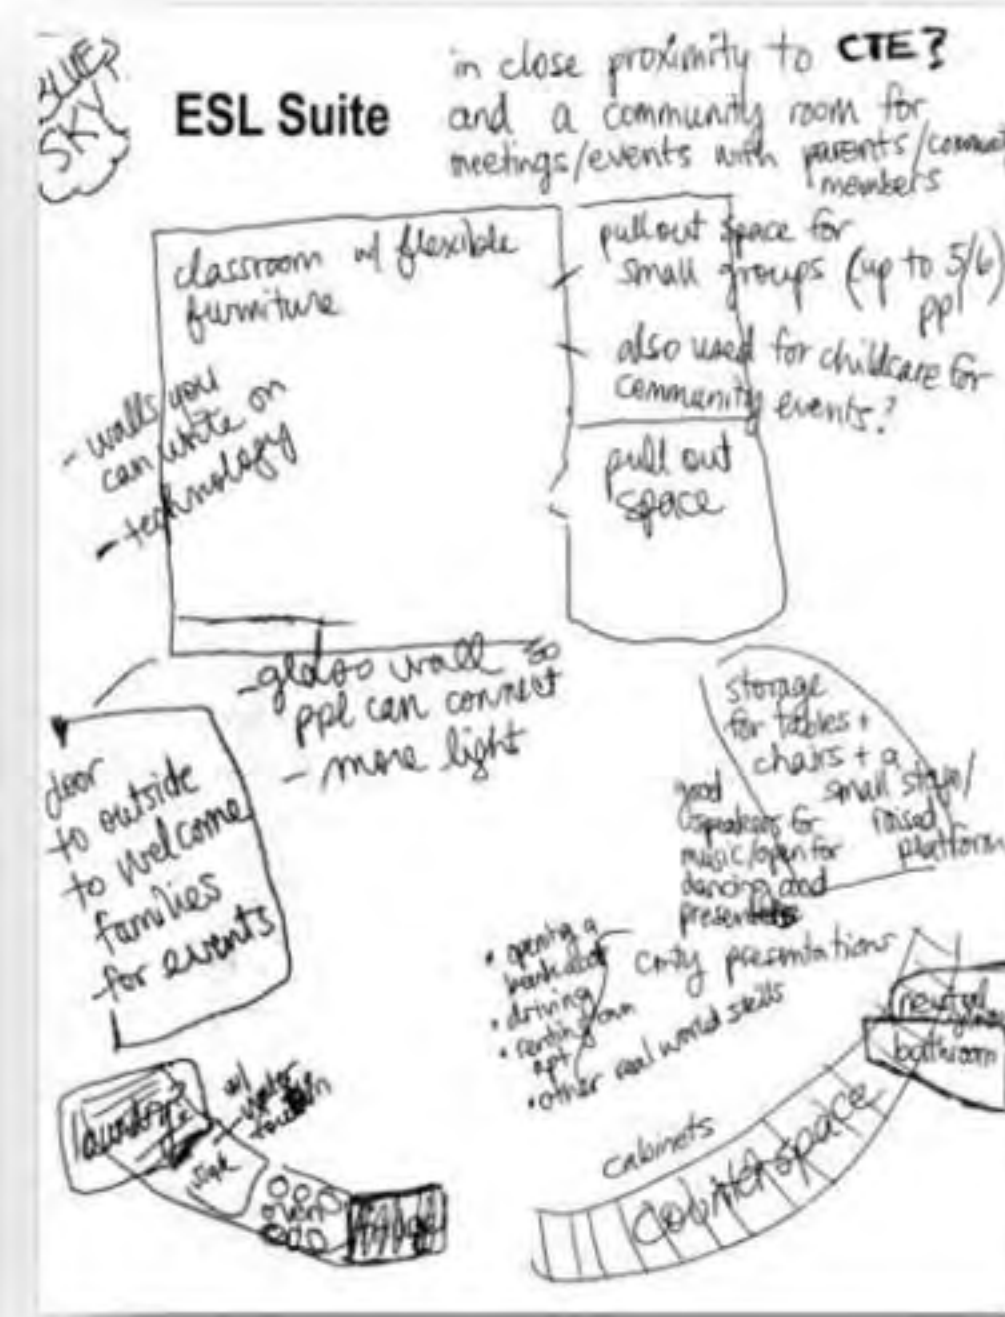 BLUE?
SKY
ESL Suite
in close proximity to CTE?
and a community room for
meetings/events with parents/commun
members
classroom w/ flexible
furniture
- walls you
can write on
- technology
pullout space for
small groups (up to 5/6)
ppl
also used for childcare for
community events?
pull out
space
wall so
ppl can connect
- more light
door
to outside
to welcome
families
for events
storage
for tables +
chairs + a
small stage/
raised
platform
good
speakers for
music/open for
dancing and
• opening a
bank
• driving
• renting own
apt
• other real world skills
cmty presentations
neutral
bathroom
laundry
w/
water
sink
cabinets
counter space